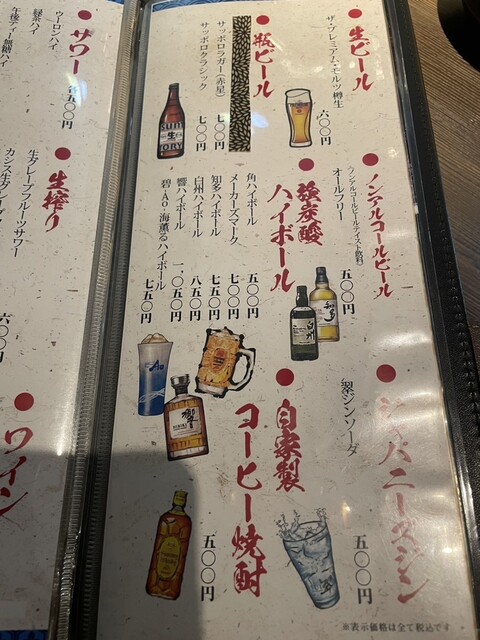 生ビール
ザ・プレミアム・モルツ樽生
六〇〇円
瓶ビール
サッポロラガー(赤星)
七〇〇円
サッポロクラシック
七〇〇円
ノンアルコールビール
(ノンアルコールビールテイスト飲料)
オールフリー
五〇〇円
強炭酸
ハイボール
角ハイボール
五〇〇円
メーカーズマーク
七〇〇円
知多ハイボール
七五〇円
白州ハイボール
八五〇円
響ハイボール
一、〇五〇円
碧-Ao-海薫るハイボール
七五〇円
ジャパニーズジン
翠ジンソーダ
五〇〇円
自家製
コーヒー焼酎
五〇〇円
※表示価格は全て税込です
サワー
各五〇〇円
ウーロンハイ
緑茶ハイ
午後ティー無糖ハイ
生搾り
生グレープフルーツサワー
六〇〇円
ワイン
SUNTORY
生
知多
白州
響